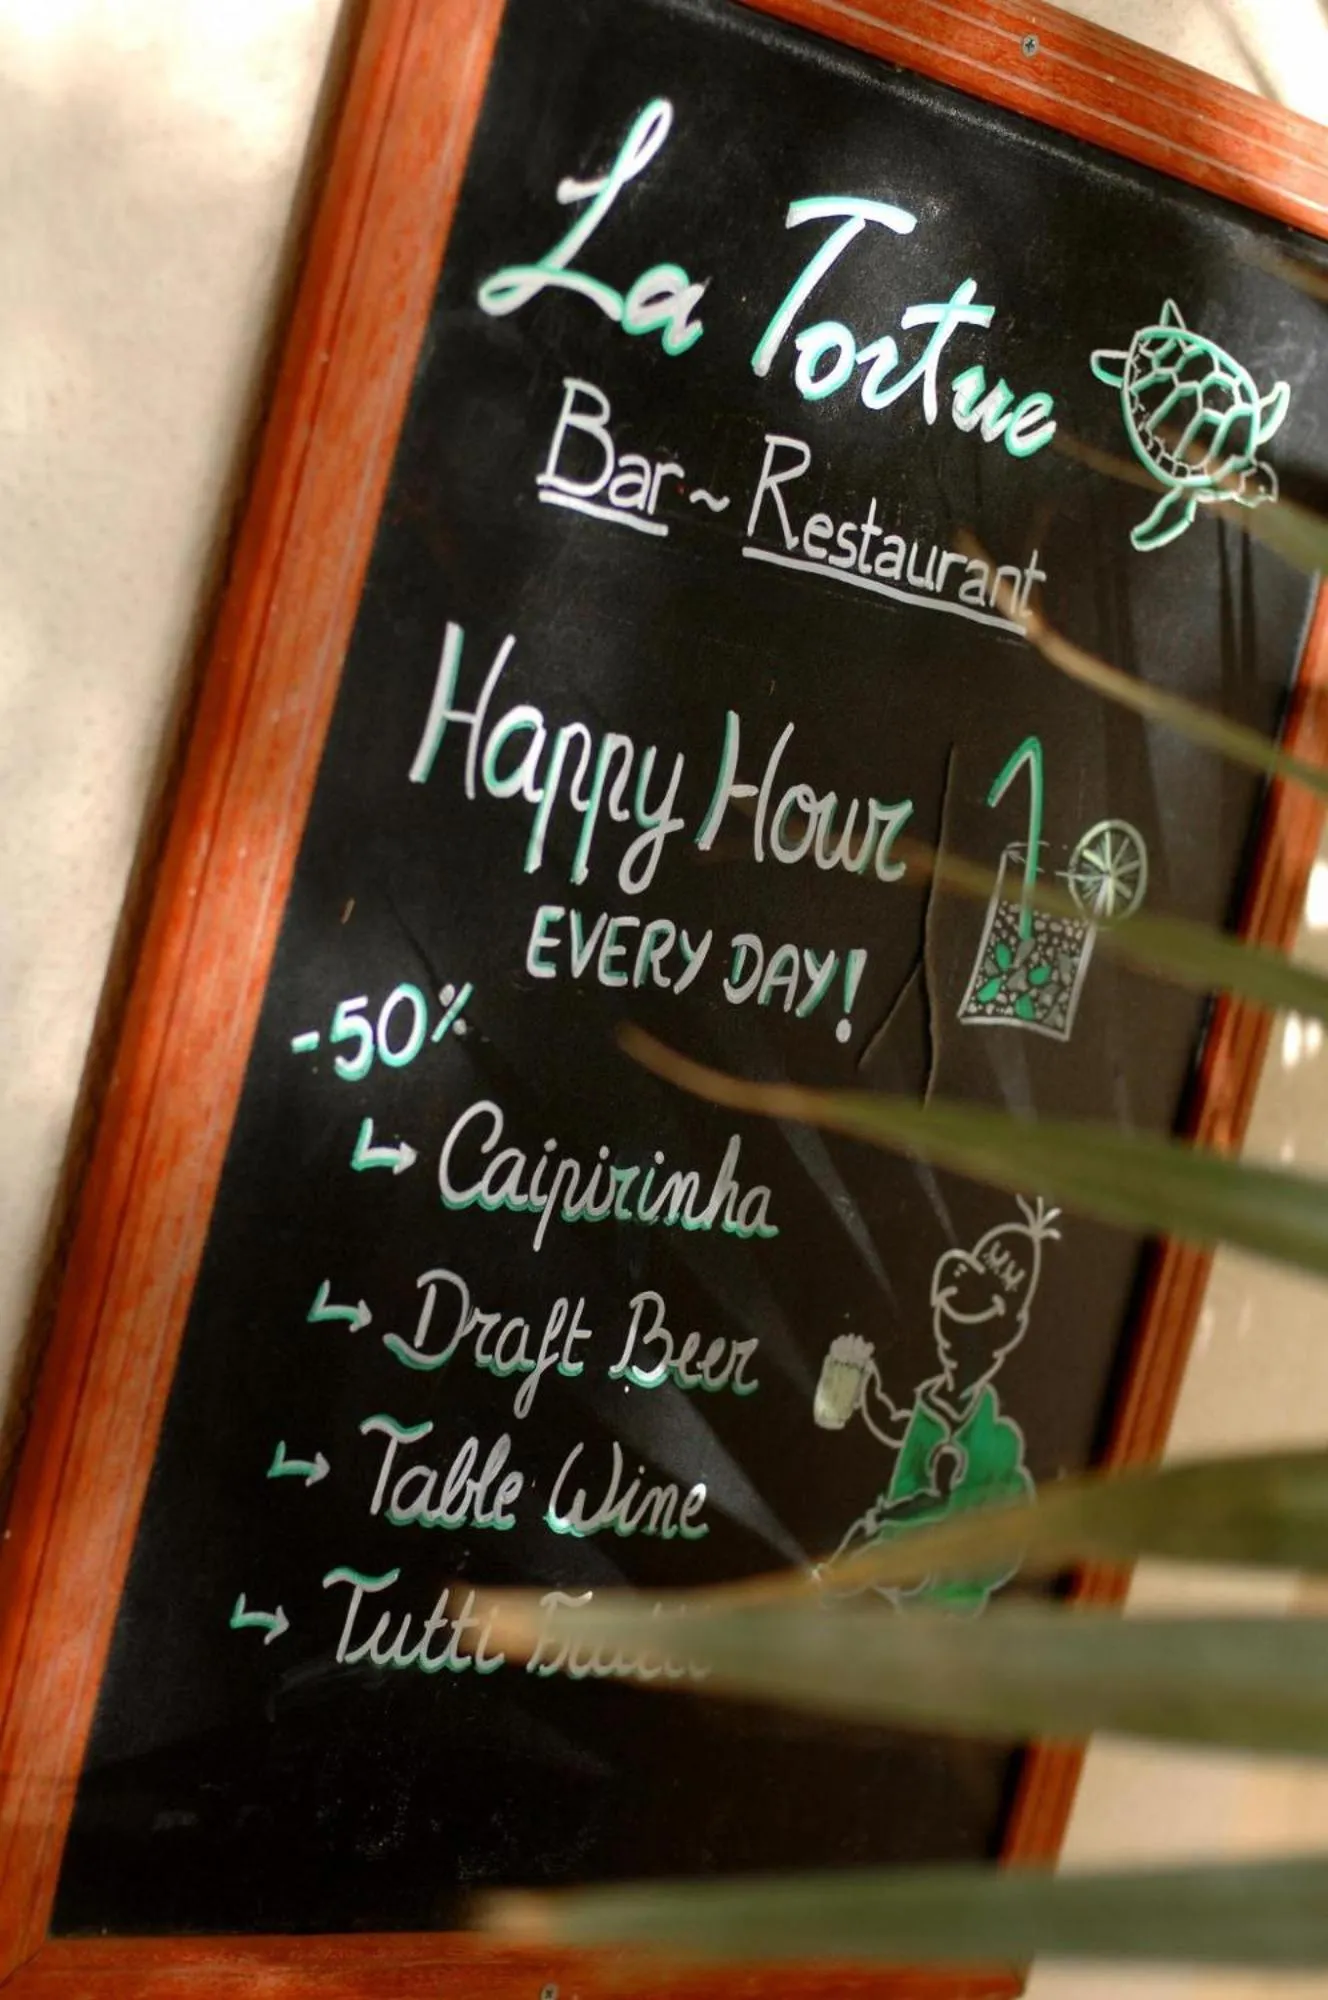 La Tortue
Bar ~ Restaurant
Happy Hour
EVERY DAY!
-50%
↳ Caipirinha
↳ Draft Beer
↳ Table Wine
↳ Tutti Frutti